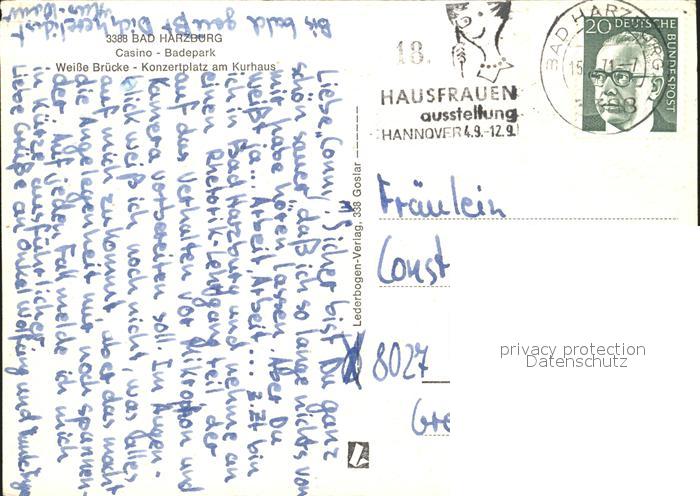 3388 BAD HARZBURG
Casino - Badepark
Weiße Brücke - Konzertplatz am Kurhaus
Liebe Conny! Sicher bist Du ganz
schön sauer, daß ich so lange nichts von
mir habe hören lassen. Aber Du
weißt ja... Arbeit, Arbeit... z.Zt. bin
ich in Bad Harzburg und nehme an
einen Rhetorik-Lehrgang teil der
auf das Verhalten vor Mikrophon und
Kamera vorbereiten soll. Im Augen-
blick weiß ich noch nicht, was alles
auf mich zukommt, aber das macht
die Angelegenheit nur noch spannen-
der. Auf jeden Fall melde ich mich
in Kürze ausführlicher.
Liebe Grüße an Onkel Wolfgang und
Bis bald grüßt Dich herzlichst
Lederbogen-Verlag, 338 Goslar
18.
HAUSFRAUEN
ausstellung
HANNOVER 4.9.-12.9.
BAD HARZBURG
15. 71.-7
3388
20 DEUTSCHE
BUNDESPOST
Fräulein
Const
8027
Gre
privacy protection
Datenschutz